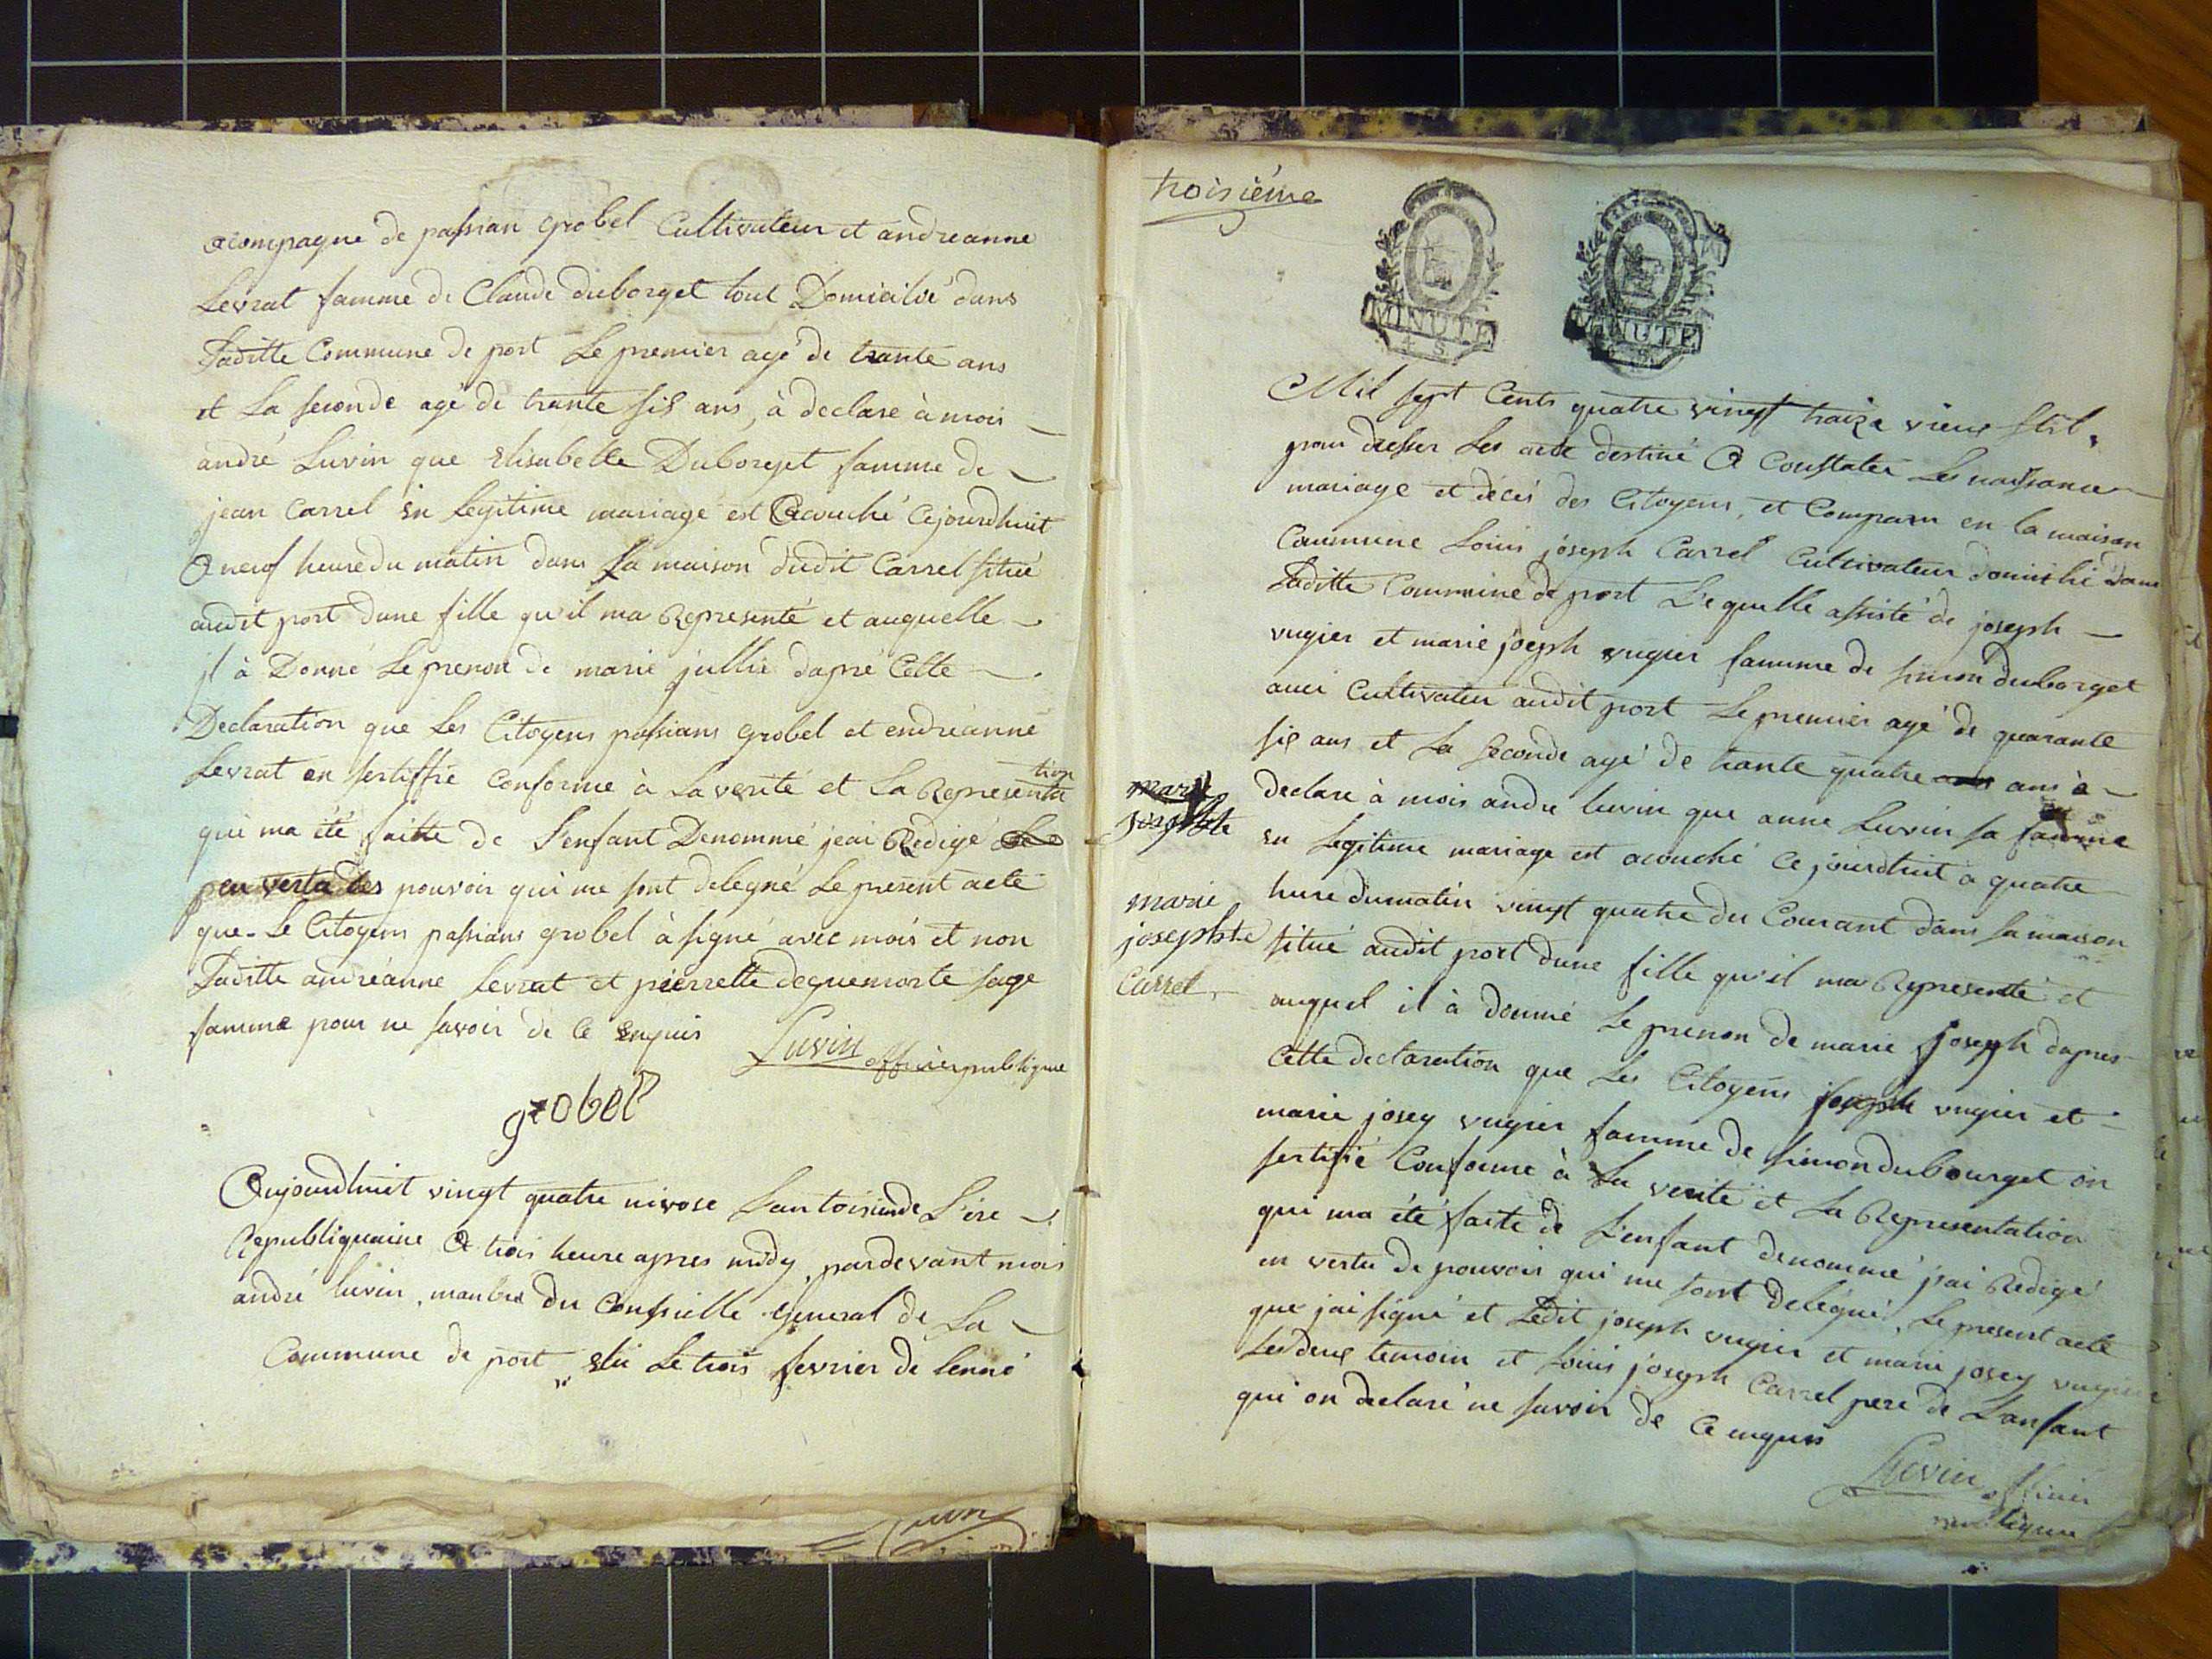 acompagne de passian grobel Cultivateur et andreanne
Levrat famme de Claude duborget tout Domicilié dans
Laditte Commune de port Le premier agé de trante ans
et La seconde agé de trante sis ans, à declare à mois
andré Luvin que Elisabelle Duborget famme de
jean Carrel En Legitime mariage est acouché Cejourdhuit
a neuf heure du matin dans sa maison dudit Carrel situé
audit port dune fille qu'il ma Representé et auquelle
jl à Donné Le prenon de marie jullie dapré Cette
Declaration que Les Citoyens passians grobel et endréanne
Levrat on sertiffié Conforme à La verité et La Representation
qui ma été faitte de L'enfant Denommé jeai Redigé
en vertu des pouvoir qui me sont delegué Le present acte
que Le Citoyens passians grobel à signé avec mois et non
Laditte andréanne Levrat et pierrette dequemorte sage
famme pour ne savoir de Ce Enquis
Luvin officier publique
grobel
Aujourdhuit vingt quatre nivose Lan toisiemde L'ere
Republiquaine a trois heure apres midy, pardevant mois
andré luvin, manbre du Conssielle general de La
Commune de port Elu Le trois fevrier de lenné
Luvin
troisiéme
MINUTE
4 S
MINUTE
Mil sept Cents quatre vingt traize vieux stil,
pour dresser Les acte destiné a Constater Les naissance
mariage et décés des Citoyens, et Comparu en la maison
Commune Louis joseph Carrel Cultivateur domicilié dans
Laditte Commune de port Lequelle assisté de joseph
vugier et marie joseph vugier famme de simon duborget
auci Cultivateur audit port Le premier agé de quarante
sis ans et La seconde agé de trante quatre ans à
declare à mois andre luvin que anne Luvin sa famme
en Legitime mariage est acouché Ce jourdhuit a quatre
hure dumatin vingt quatre du Courant dans sa maison
situé audit port dune fille qu'il ma Representé et
auquel il à donné Le prenon de marie joseph dapres
Cette declaration que Les Citoyens joseph vugier et
marie josey vugier famme de simon dubourget on
sertifié Conforme à La verité et La Representation
qui ma été faite de L'enfant denommé j'ai Redigé
en vertu de pouvoir qui me sont delégué, Le present acte
que jai signé et Ledit joseph vugier et marie josey vugier
Les deux temoin et Louis joseph Carrel pere de Lanfant
qui on declaré ne savoir de Ce enquis
Luvin officier
publique
marie
josephte
marie
josephte
Carrel